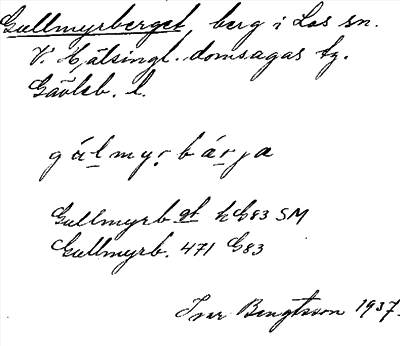 Gullmyrberget, berg i Los sn.
V. Hälsingl. domsagas tg.
Gävleb. l.
gálmyrbárja
Gullmyrb gt hG83 SM
Gullmyrb. 471 G83
Ivar Bengtsson 1937.